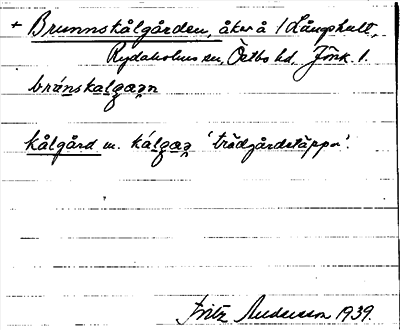 + Brunnskålgården, åker å 1 Långhult,
Rydaholms sn, Östbo hd, Jönk. l.
brúnskalgaən
kålgård m. kálgaə 'trädgårdstäppa'.
Fritz Andersson 1939.